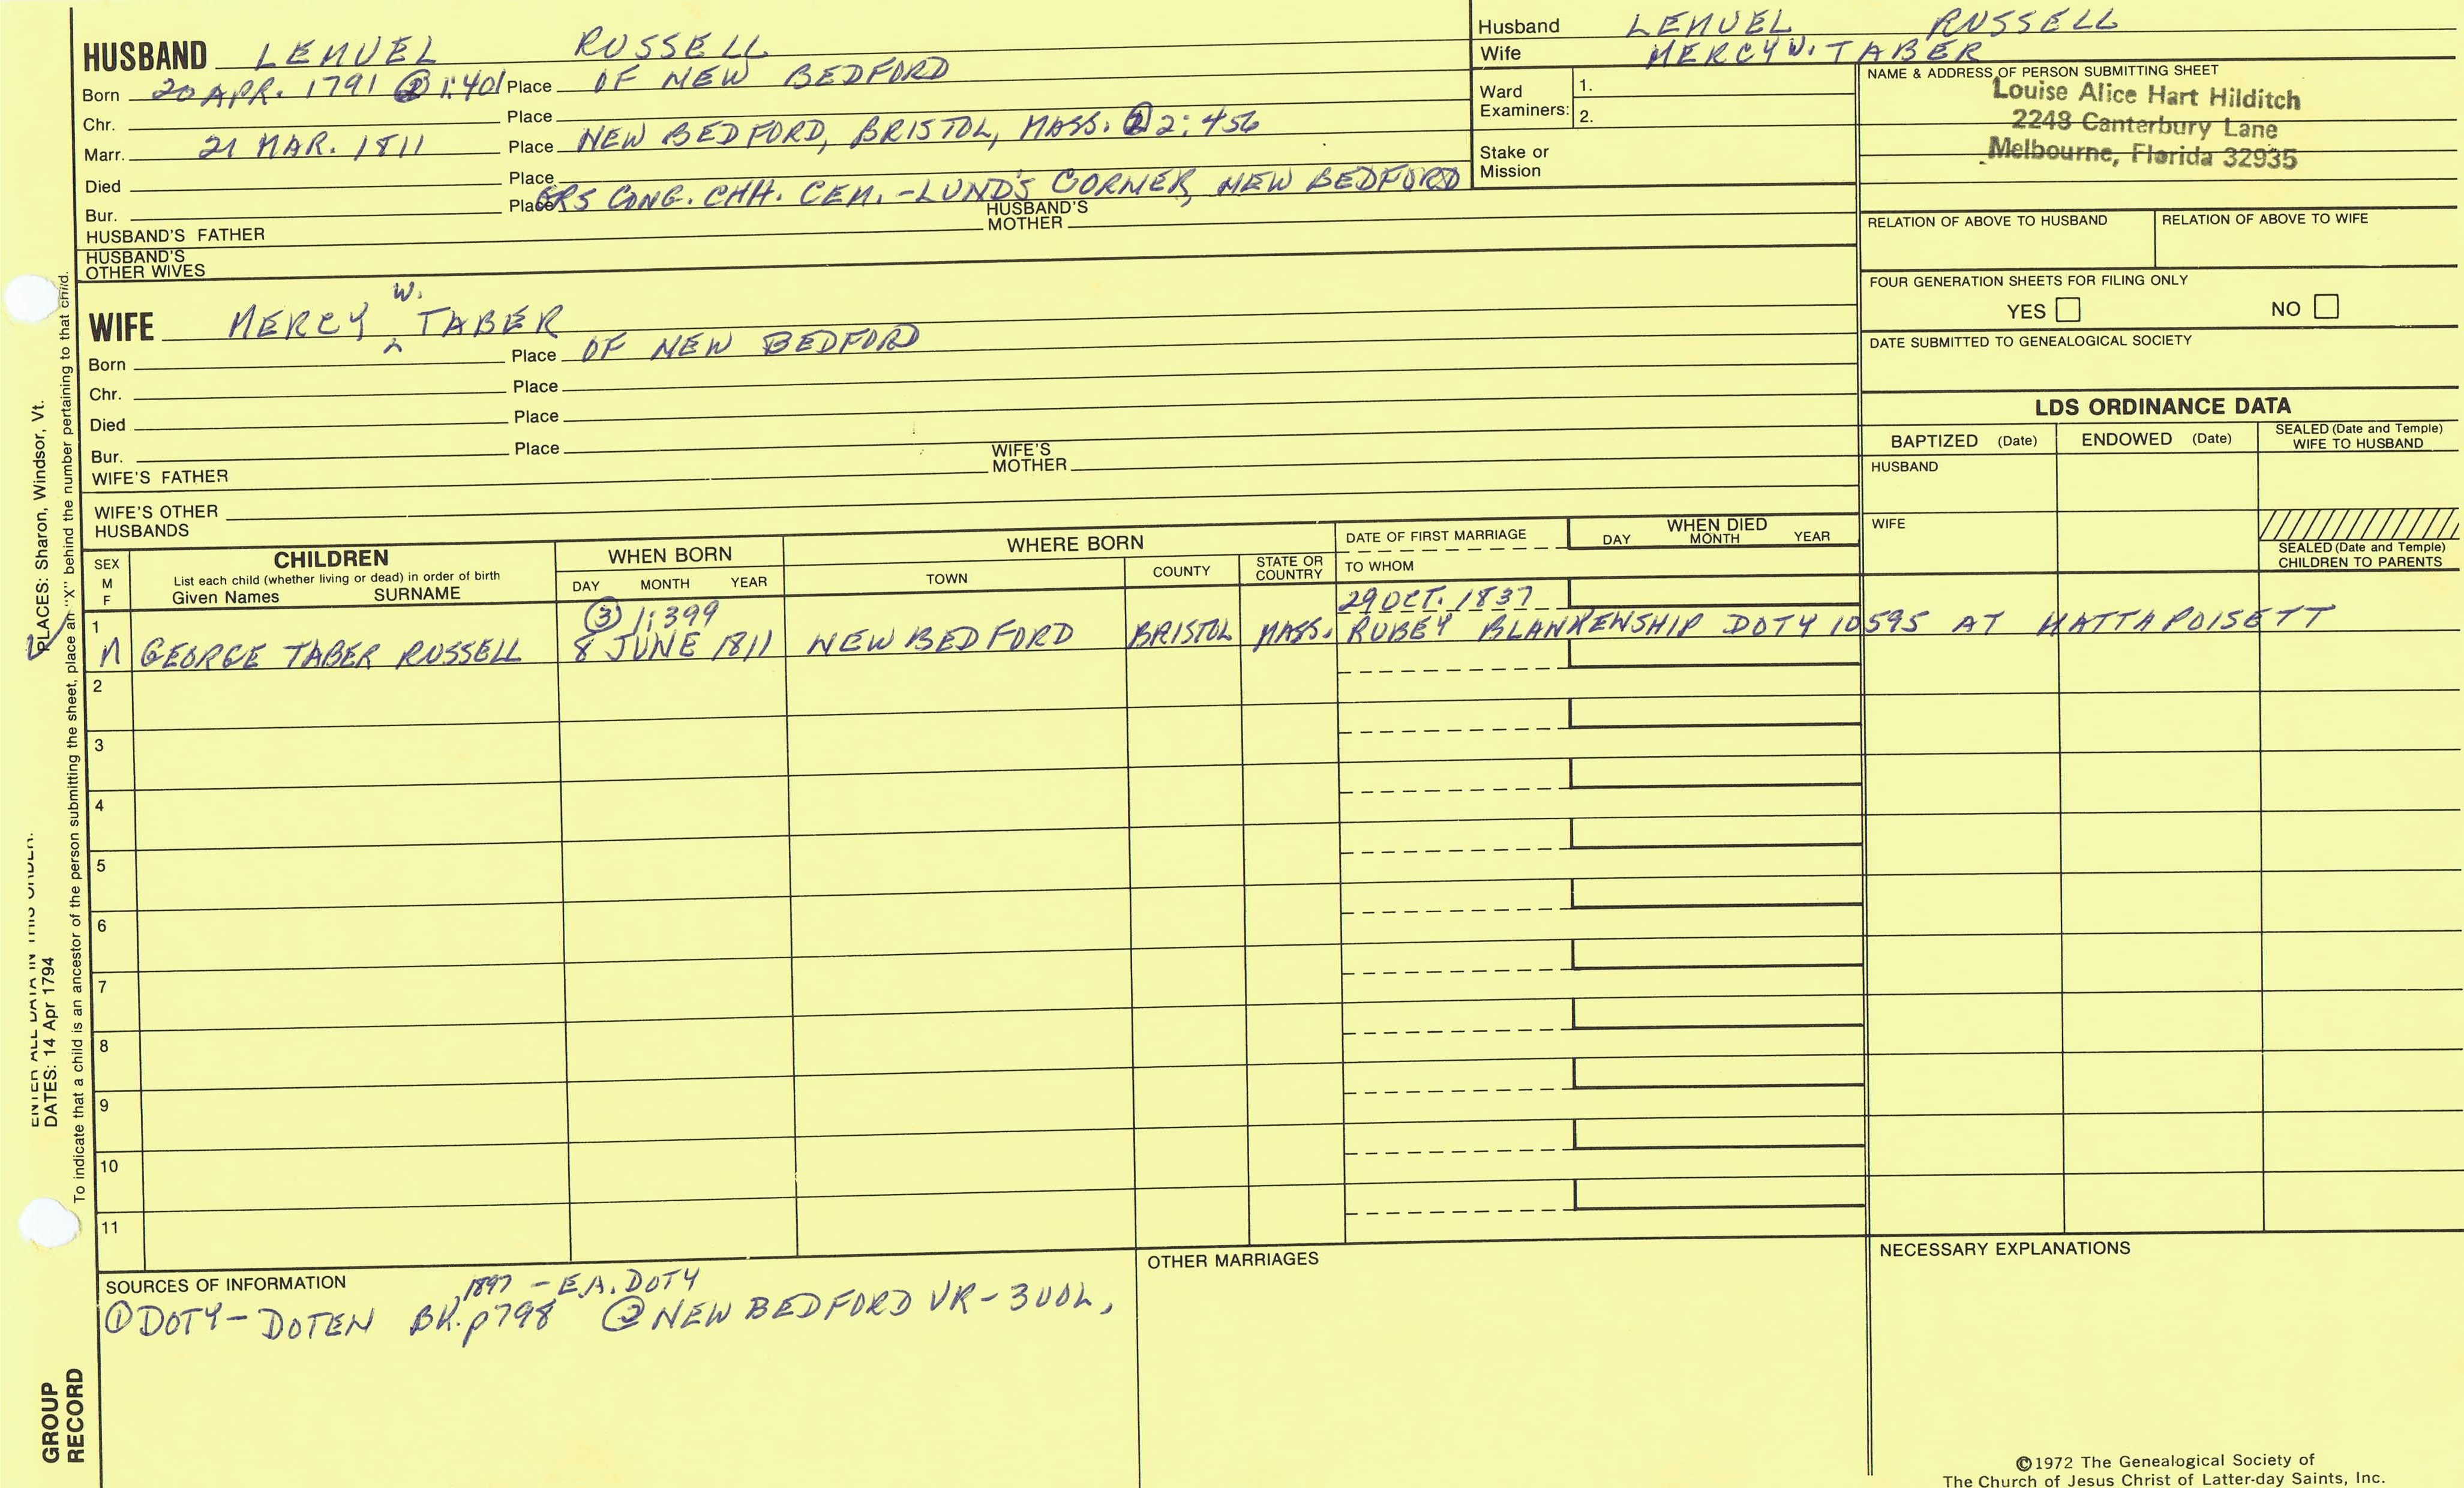 HUSBAND LEMUEL RUSSELL
Born 20 APR. 1791 ② 1:401 Place OF NEW BEDFORD
Chr. Place
Marr. 21 MAR. 1811 Place NEW BEDFORD, BRISTOL, MASS. ② 2:456
Died Place
Bur. Place GRS CONG. CHH. CEM. - LUND'S CORNER, NEW BEDFORD
HUSBAND'S FATHER HUSBAND'S MOTHER
HUSBAND'S OTHER WIVES
Husband LEMUEL RUSSELL
Wife MERCY W. TABER
Ward Examiners: 1.
2.
Stake or Mission
NAME & ADDRESS OF PERSON SUBMITTING SHEET
Louise Alice Hart Hilditch
2248 Canterbury Lane
Melbourne, Florida 32935
RELATION OF ABOVE TO HUSBAND RELATION OF ABOVE TO WIFE
FOUR GENERATION SHEETS FOR FILING ONLY
YES NO
DATE SUBMITTED TO GENEALOGICAL SOCIETY
WIFE MERCY W. TABER
Born Place OF NEW BEDFORD
Chr. Place
Died Place
Bur. Place
WIFE'S FATHER WIFE'S MOTHER
WIFE'S OTHER HUSBANDS
LDS ORDINANCE DATA
BAPTIZED (Date) ENDOWED (Date) SEALED (Date and Temple) WIFE TO HUSBAND
HUSBAND
WIFE
SEALED (Date and Temple) CHILDREN TO PARENTS
SEX M F
CHILDREN
List each child (whether living or dead) in order of birth
Given Names SURNAME
WHEN BORN
DAY MONTH YEAR
WHERE BORN
TOWN COUNTY STATE OR COUNTRY
DATE OF FIRST MARRIAGE
TO WHOM
WHEN DIED
DAY MONTH YEAR
③ 1:399 29 OCT. 1837
1 M GEORGE TABER RUSSELL 8 JUNE 1811 NEW BEDFORD BRISTOL MASS. RUBEY BLANKENSHIP DOTY 10595 AT MATTAPOISETT
2
3
4
5
6
7
8
9
10
11
SOURCES OF INFORMATION 1897 - E.A. DOTY
① DOTY - DOTEN BK. p798 ② NEW BEDFORD VR - 3 VOL,
OTHER MARRIAGES
NECESSARY EXPLANATIONS
©1972 The Genealogical Society of
The Church of Jesus Christ of Latter-day Saints, Inc.
ENTER ALL DATA IN THIS ORDER:
DATES: 14 Apr 1794
PLACES: Sharon, Windsor, Vt.
To indicate that a child is an ancestor of the person submitting the sheet, place an "X" behind the number pertaining to that child.
GROUP
RECORD